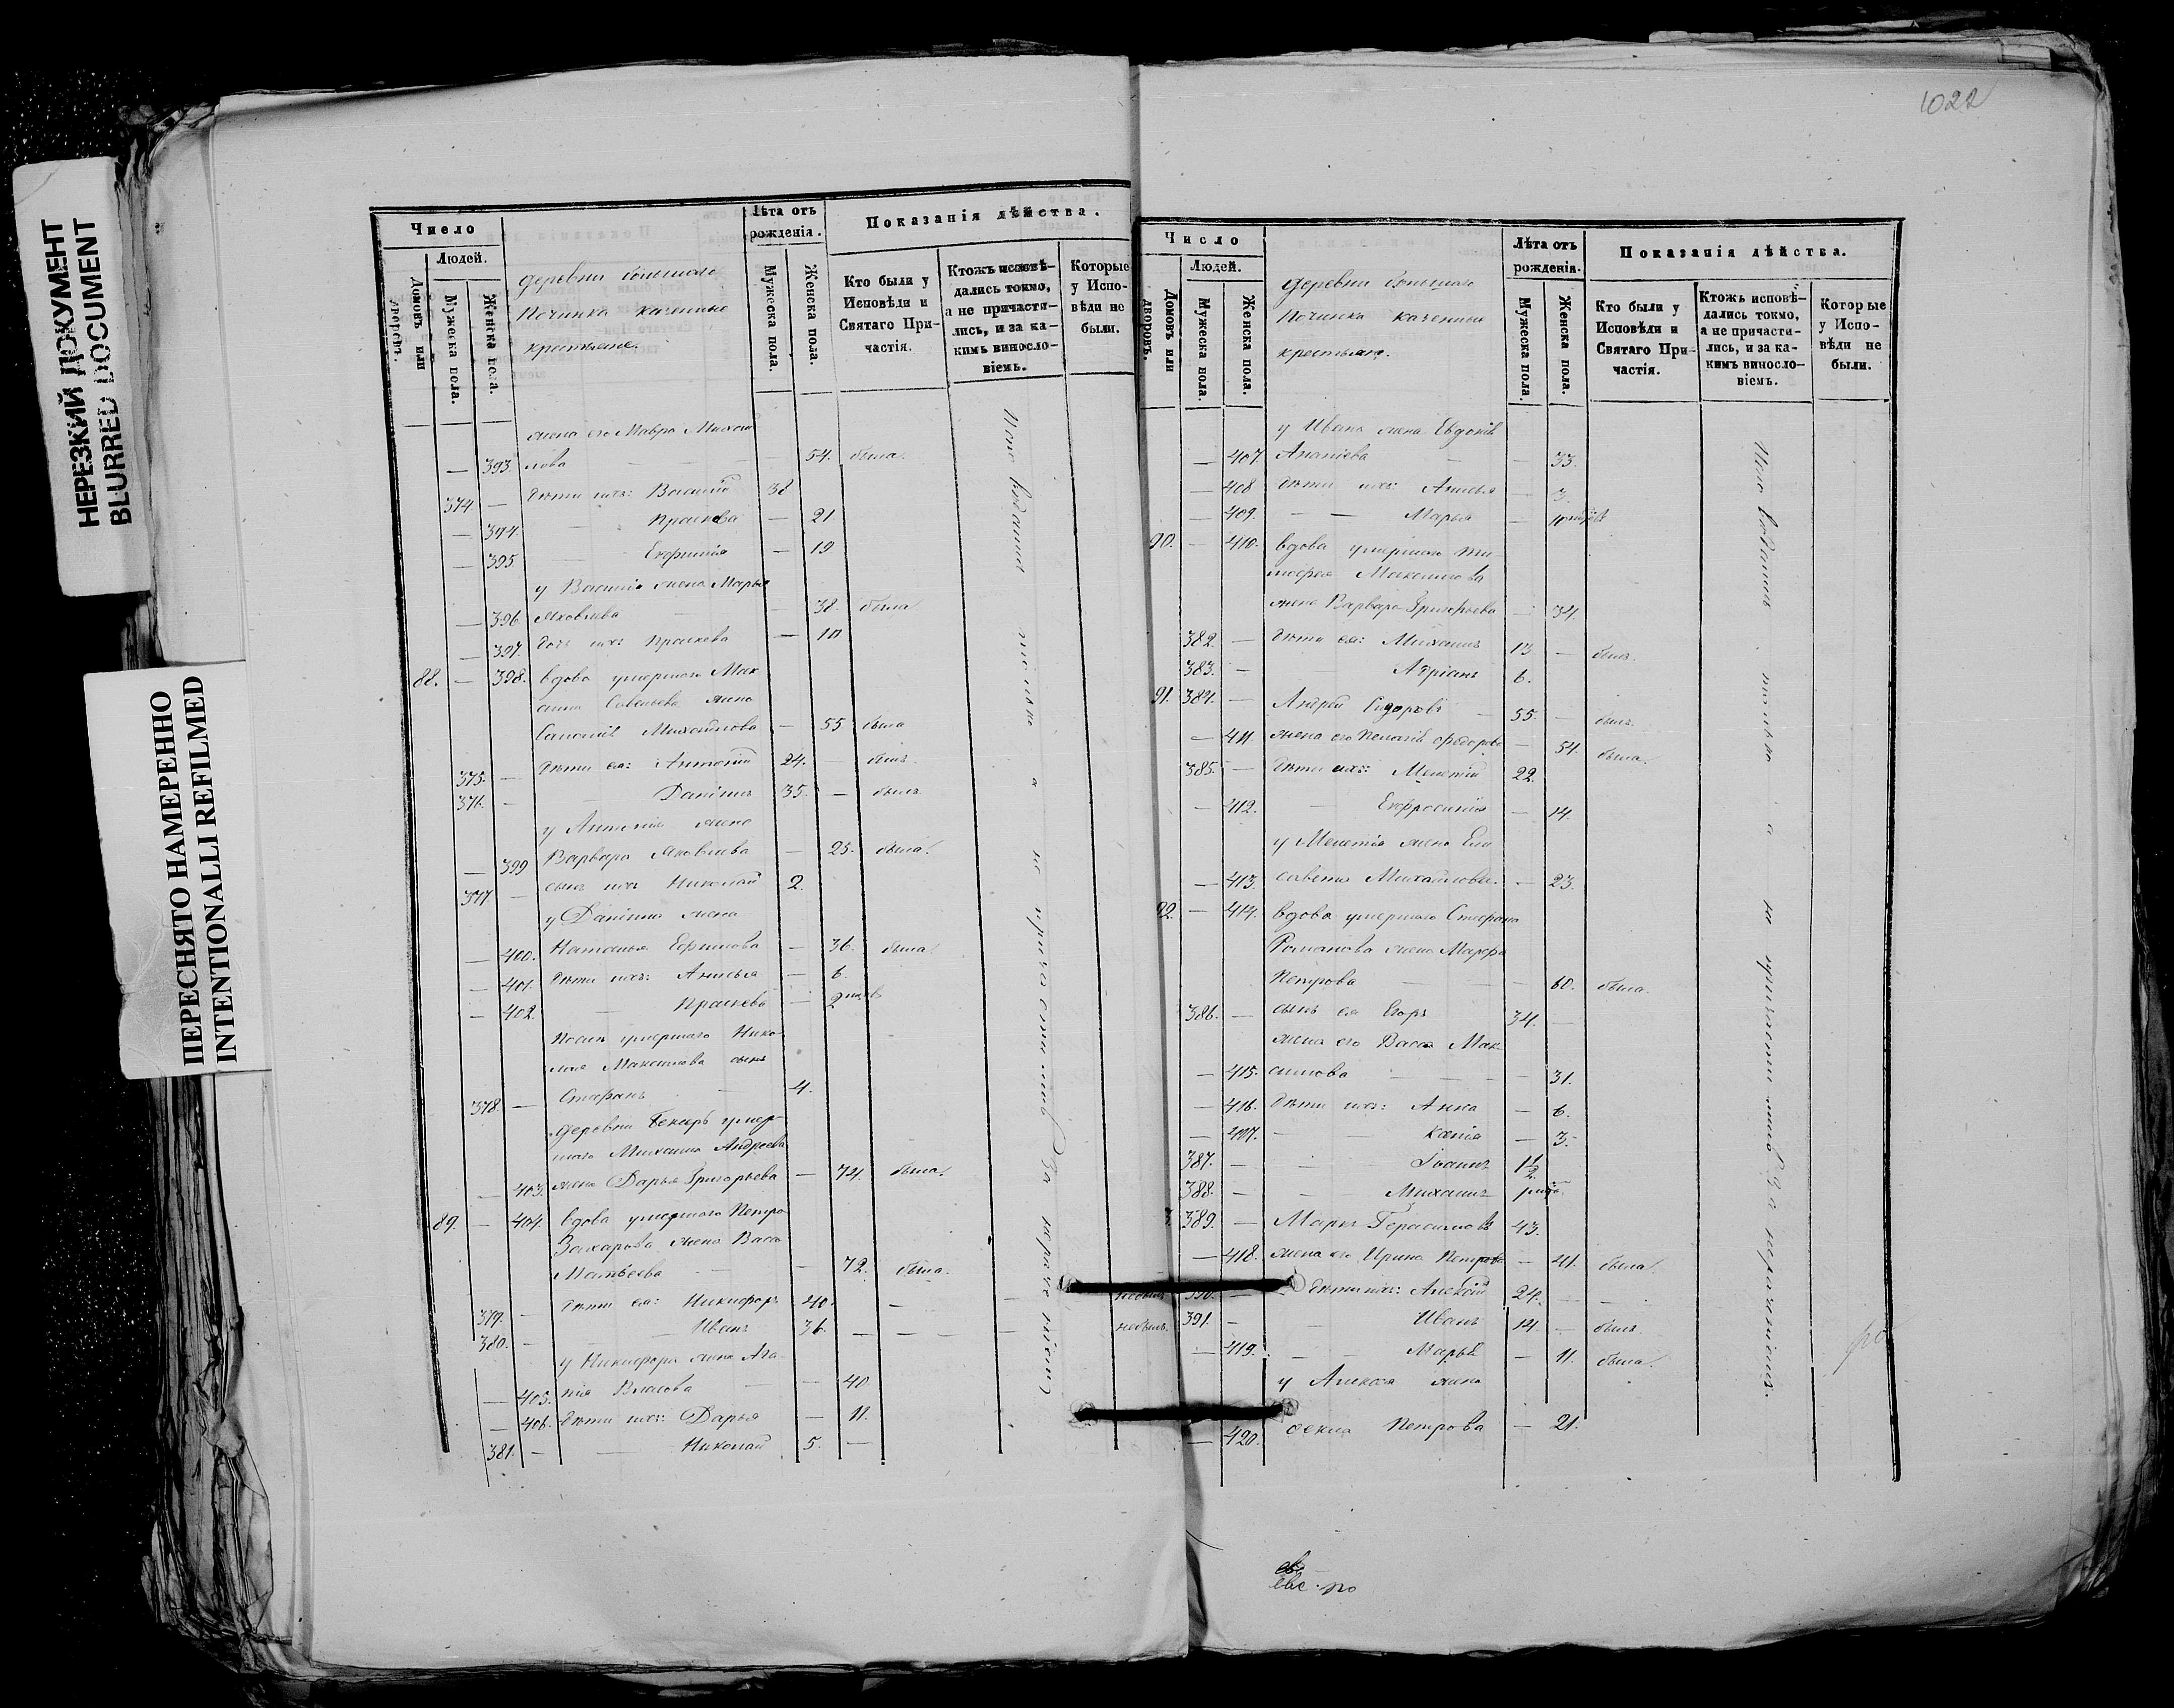 НЕРЕЗКИЙ ДОКУМЕНТ
BLURRED DOCUMENT
ПЕРЕСНЯТО НАМЕРЕННО
INTENTIONALLI REFILMED
Число
Людей.
Домовъ или дворовъ.
Мужеска пола.
Женска пола.
деревни большаго
Починка казенные
крестьяне.
Лѣта отъ
рожденія.
Мужеска пола.
Женска пола.
Показанія дѣйства.
Кто были у
Исповѣди и
Святаго При-
частія.
Ктожъ исповѣ-
дались токмо,
а не причасти-
лись, и за ка-
кимъ винosло-
віемъ.
Которые
у Испо-
вѣди не
были.
жена его Мавра Михай
— 393. лова — 54. была.
374. — дѣти ихъ: Василій 38
— 394. — Праскева — 21
— 395. — Евфимія — 19
у Василія жена Марья
— 396. Яковлева — 38. была
— 397. дочь ихъ Праскева — 10
88. — 398. вдова умершаго Мак
сима Савельева жена
Михайлова — 55 была
375. — дѣти ея: Антоній 24. — былъ.
376. — Даніилъ 35. — былъ
у Антонія жена
— 399 Варвара Яковлева — 25. была.
377 — сынъ ихъ Николай 2.
у Даніила жена
— 400. Наталья Ефимова — 36. была.
— 401. дѣти ихъ: Анисья — 6.
— 402. — Праскева — 2
Послѣ умершаго Нико-
лая Максимова сынъ
378. — Стефанъ 4.
деревни умер-
шаго Михаила Андреева
— 403. жена Дарья Григорьева — 74. была.
89. — 404. вдова умершаго Петра
Захарова жена Васса
Матвѣева — 72. была.
379. — дѣти ея: Никифоръ 40. — небылъ.
380. — Иванъ 36. — небылъ.
у Никифора жена Ага-
— 405. пія Власова — 40
— 406. дѣти ихъ: Дарья — 11.
381. — Николай 5. —
Исповѣдались токмо а не причастились За нерачениемъ
1022
Число
Людей.
Домовъ или дворовъ.
Мужеска пола.
Женска пола.
деревни большаго
Починка казенные
крестьяне.
Лѣта отъ
рожденія.
Мужеска пола.
Женска пола.
Показанія дѣйства.
Кто были у
Исповѣди и
Святаго При-
частія.
Ктожъ исповѣ-
дались токмо,
а не причасти-
лись, и за ка-
кимъ виносло-
віемъ.
Которые
у Испо-
вѣди не
были.
у Ивана жена Евдокія
— 407 Ананіева — 33.
— 408 дѣти ихъ: Анисья — 3.
— 409. — — Марья —
90. — 410. вдова умершаго Ти-
мофея Максимова
жена Варвара Григорьева — 34.
382. — дѣти ея: Михаилъ 13 — былъ.
383. — Адріанъ 6.
91. 384. — Андрей Сидоровъ — 55. — былъ.
— 411. жена его Пелагія Федорова — 54. была.
385. — дѣти ихъ: Мелетій 22.
— 412. — Евфросинія — 14.
у Мелетія жена Ели
— 413. савета Михайлова. — 23.
92. — 414. вдова умершаго Стефана
Романова жена Марфа
Петрова — 60. была.
386. — сынъ ея Егоръ 34. —
жена его Васса Мак-
— 415. симова — 31.
— 416. дѣти ихъ: Анна — 6.
— 417. — Ксенія — 3.
387. — Іоаннъ 1 1/2
388. — Михаилъ
3. 389. — Маркъ Герасимовъ 43.
— 418. жена его Ирина Петрова — 41. была.
390. — дѣти ихъ: Алексій 24. —
391. — Иванъ 14 — былъ.
— 419. — — Марья — 11. была.
у Алексія жена
— 420. Ѳекла Петрова — 21.
Исповѣдались токмо а не причастились За нерачениемъ.